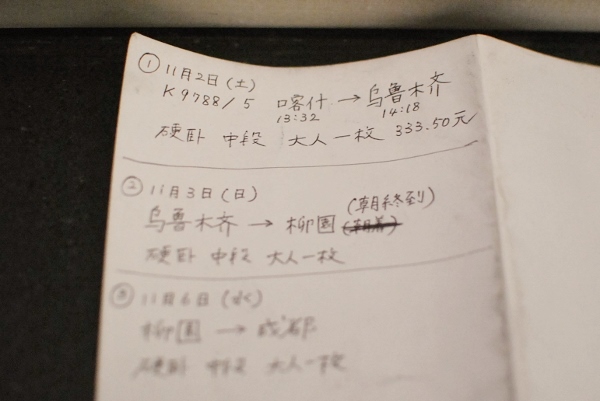 ① 11月2日(土)
K9788/5 喀什 → 乌鲁木齐
13:32 14:18
硬卧 中段 大人一枚 333.50元
② 11月3日(日)
乌鲁木齐 → 柳園 (朝終到)
硬卧 中段 大人一枚
③ 11月6日(水)
柳園 → 成都
硬卧 中段 大人一枚